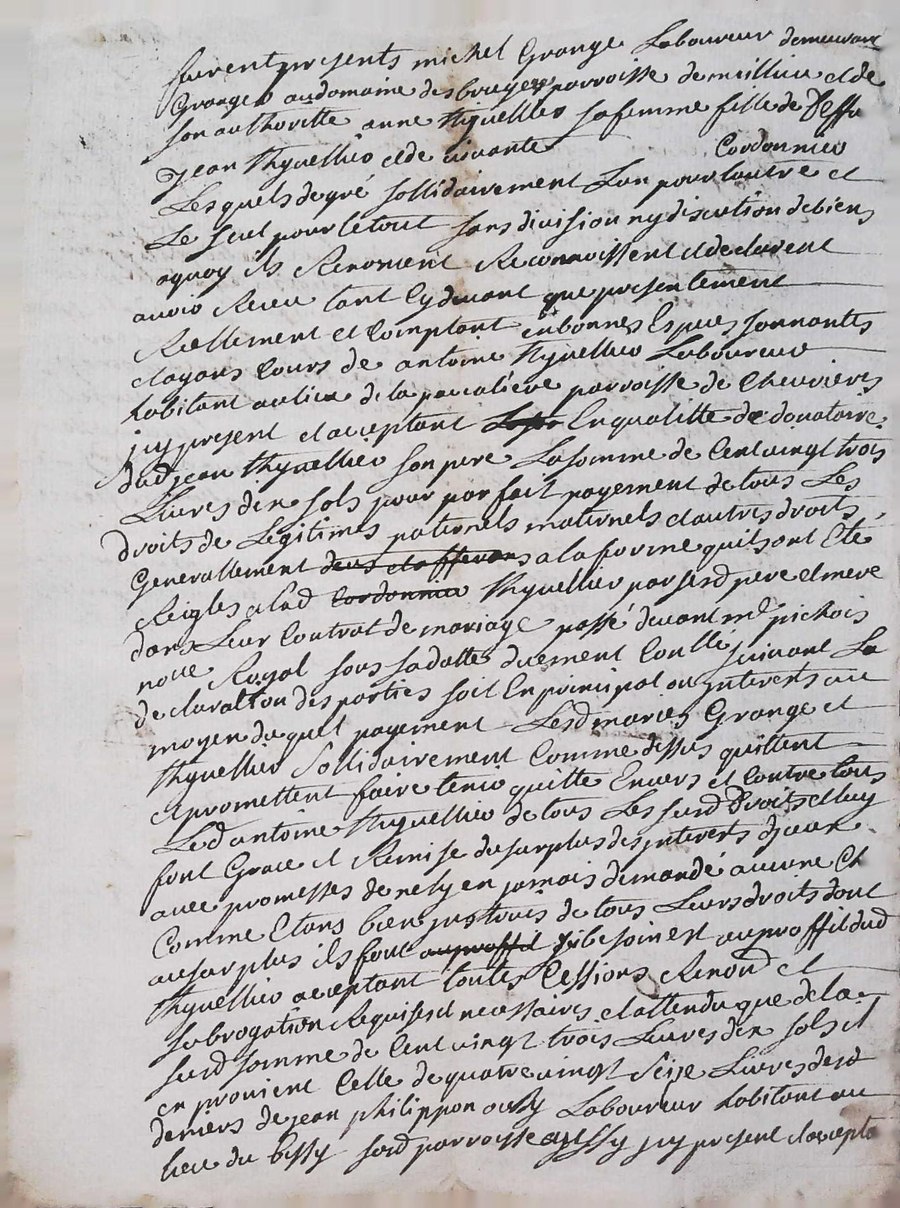 furent presents michel Grange Laboureur demeurant
Granger au domaine des bruyere parroisse de meillieu et de
son authoritte anne thyuellieu sa femme fille de Deffu
Jean thyuellieu et de vivante Cordonnieu
Lesquels de gré sollidairement Lun pour lautre et
Le seul pour letout sans division ny discution de biens
aquoy ils Renoncent Reconnoissent et declarent
avoir Receu tant Cy devant que presentement
Reellement et Comptant en bonnes Espces sonnantes
et ayans Cours de antoine thyuellieu Laboureur
habitant au lieu de la parroisse de Chevrieres
jcy present et acceptant En qualitte de donatoire
dud jean thyuellieu son pere La somme de Cent vingt trois
Livres dix sols pour parfait payement de tous Les
droits de Legitimes paternels maternels et autres droits
Generallement deus et afferans a la forme quils ont Ete
Reigles a lad Cordonnieu thyuellieu par sesd pere et mere
dans Leur Contrat de mariage passé devant me pichois
note Royal sous sa datte duement Conllé suivant La
declaration des parties soit En principal ou jnterests au
moyen duquel payement Lesd maries Grange et
thyuellieu sollidairement Comme dessus quittent
et promettent faire tenir quitte Envers et Contre tous
Led antoine thyuellieu de tous Les susd Droits et luy
font Grace et Remise du surplus des jnterests djceux
avec promesses de ne luy en jamais demandé aucune Ch
Comme Etans bien jnstruits de tous Leurs droits dont
au surplus ils font au proffit sy besoin est au proffit dud
thyuellieu acceptant toutes Cessions Renond et
subrogation Requises et necessaires et attendu que de la
susd somme de Cent vingt trois Livres dix sols il
en provient Celle de quatre vingt seize Livres des d
deniers de jean philippon Laboureur habitant au
lieu du bissy susd parroisse jcy present et accepta